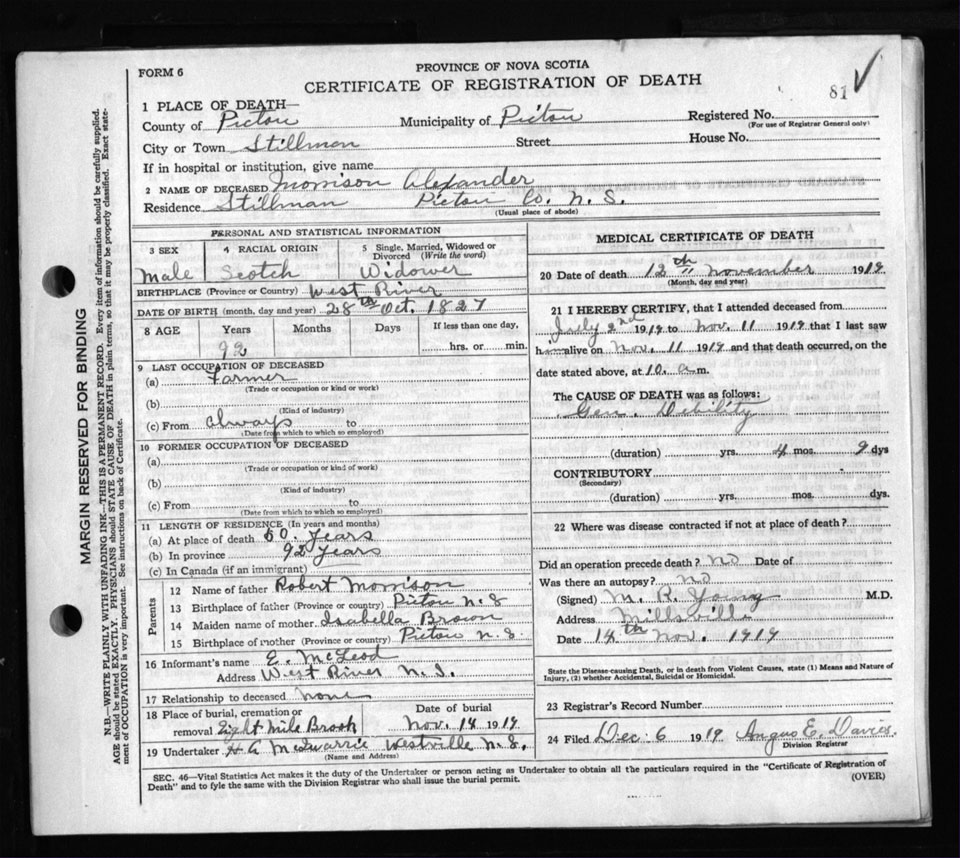 PROVINCE OF NOVA SCOTIA
FORM 6
CERTIFICATE OF REGISTRATION OF DEATH
81
1 PLACE OF DEATH—
County of Pictou Municipality of Pictou Registered No.
(For use of Registrar General only)
City or Town Stillman Street House No.
If in hospital or institution, give name
2 NAME OF DECEASED Morrison Alexander
Residence Stillman Pictou Co. N. S.
(Usual place of abode)
PERSONAL AND STATISTICAL INFORMATION
3 SEX 4 RACIAL ORIGIN 5 Single, Married, Widowed or Divorced (Write the word)
Male Scotch Widower
BIRTHPLACE (Province or Country) West River
DATE OF BIRTH (month, day and year) 28th Oct. 1827
8 AGE Years Months Days If less than one day,
92 hrs. or min.
9 LAST OCCUPATION OF DECEASED
(a) Farmer
(Trade or occupation or kind or work)
(b)
(Kind of industry)
(c) From always to
(Date from which to which so employed)
10 FORMER OCCUPATION OF DECEASED
(a)
(Trade or occupation or kind of work)
(b)
(Kind of industry)
(c) From to
(Date from which to which so employed)
11 LENGTH OF RESIDENCE (In years and months)
(a) At place of death 60. years
(b) In province 92 years
(c) In Canada (if an immigrant)
Parents
12 Name of father Robert Morrison
13 Birthplace of father (Province or country) Pictou N. S
14 Maiden name of mother Isabella Brown
15 Birthplace of mother (Province or country) Pictou N. S.
16 Informant's name E. McLeod
Address West River N. S.
17 Relationship to deceased none
18 Place of burial, cremation or Date of burial
removal Eight Mile Brook Nov. 14 1919
19 Undertaker H A McQuarrie Westville N. S.
(Name and Address)
MEDICAL CERTIFICATE OF DEATH
20 Date of death 12th November 1919
(Month, day and year)
21 I HEREBY CERTIFY, that I attended deceased from
July 2nd 1919 to Nov. 11 1919 that I last saw
him alive on Nov. 11 1919 and that death occurred, on the
date stated above, at 10. a. m.
The CAUSE OF DEATH was as follows:
Gen. Debility
(duration) yrs. 4 mos. 9 dys
CONTRIBUTORY
(Secondary)
(duration) yrs. mos. dys.
22 Where was disease contracted if not at place of death?
Did an operation precede death? No Date of
Was there an autopsy? No
(Signed) M. R. Young M.D.
Address Millsvill
Date 14th Nov. 1919
State the Disease-causing Death, or in death from Violent Causes, state (1) Means and Nature of
Injury, (2) whether Accidental, Suicidal or Homicidal.
23 Registrar's Record Number
24 Filed Dec. 6 1919 Angus E. Davies.
Division Registrar
SEC. 46—Vital Statistics Act makes it the duty of the Undertaker or person acting as Undertaker to obtain all the particulars required in the "Certificate of Registration of
Death" and to fyle the same with the Division Registrar who shall issue the burial permit.
(OVER)
MARGIN RESERVED FOR BINDING
N.B.—WRITE PLAINLY WITH UNFADING INK—THIS IS A PERMANENT RECORD. Every item of information should be carefully supplied.
AGE should be stated EXACTLY. PHYSICIANS should STATE CAUSE OF DEATH in plain terms, so that it may be properly classified. Exact state-
ment of OCCUPATION is very important. See instructions on back of Certificate.